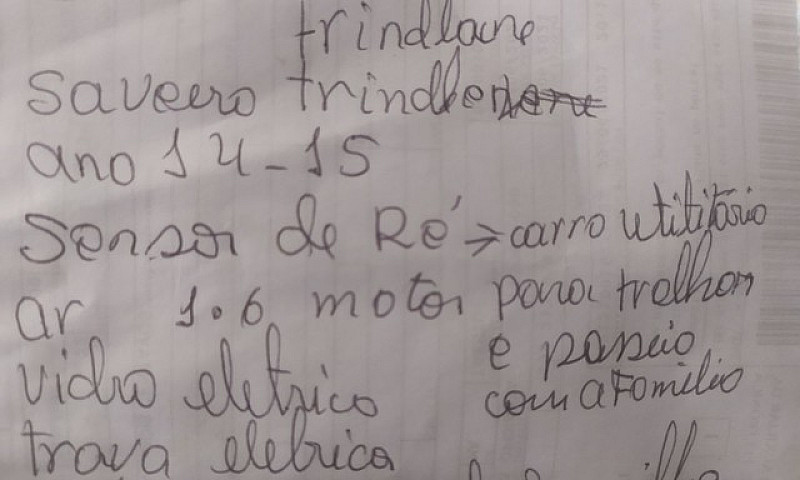 trindlane
Saveiro trindle
ano 14-15
Sensor de Ré → carro utilitário
ar 1.6 motor para tralhar
e passeio
vidro eletrico com a Familia
trava eletrica